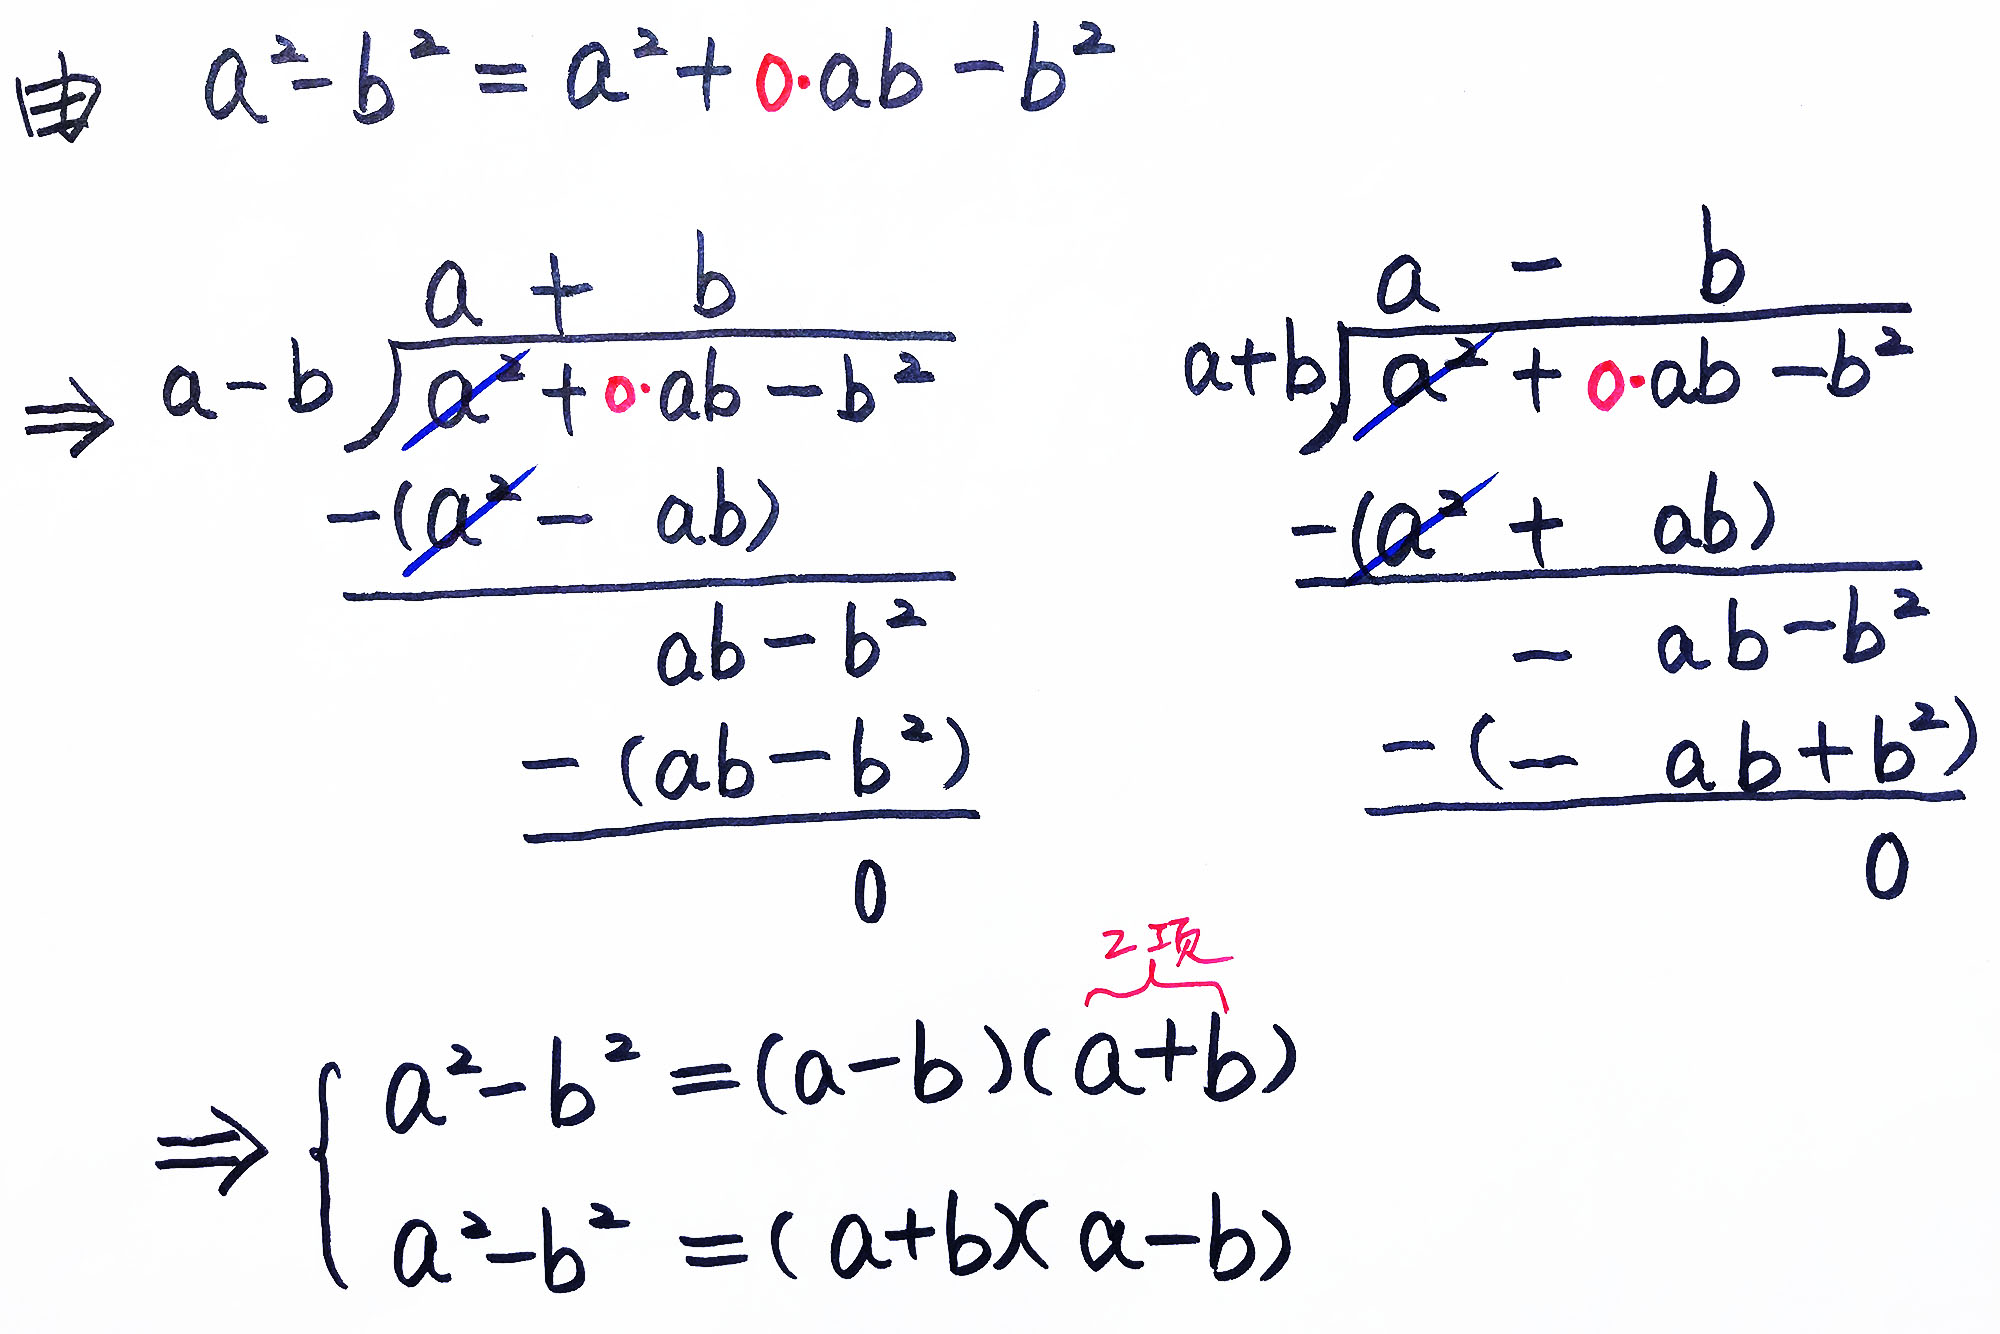 a²-b² = a²+0·ab-b²
a + b
⇒ a-b a²+0·ab-b²
-(a²-ab)
ab-b²
-(ab-b²)
0
a - b
a+b a²+0·ab-b²
-(a²+ab)
-ab-b²
-(-ab+b²)
0
2项
⇒ { a²-b² =(a-b)(a+b)
a²-b² =(a+b)(a-b)